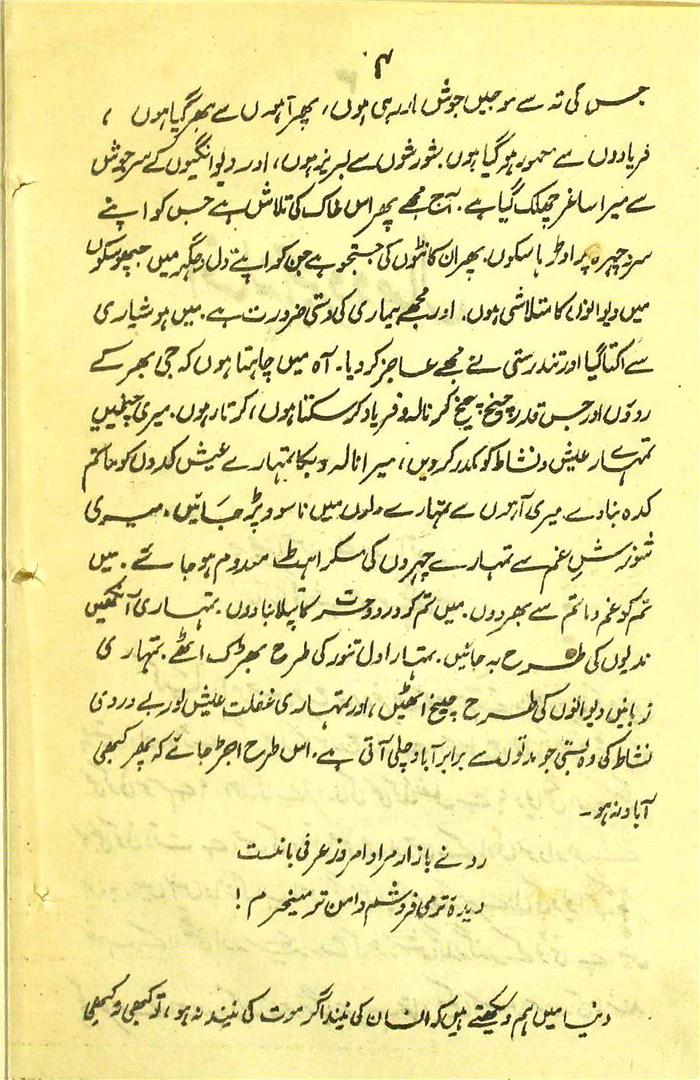 ۴
جس کی تہ سے موجیں جوش مار رہی ہوں، پھر آہوں سے بھر گیا ہوں ،
فریادوں سے معمور ہو گیا ہوں۔ شورشوں سے لبریز ہوں، اور دیوانگیوں کے سرجوش
سے میرا ساغر چھلک گیا ہے۔ آج مجھے پھر اس خاک کی تلاش ہے جس کو اپنے
سر و چہرہ پر اوڑا سکوں۔ پھر ان کانٹوں کی جستجو ہے جن کو اپنے دل و جگر میں چبھو سکوں
میں دیوانوں کا متلاشی ہوں۔ اور مجھے بیماری کی ضرورت ہے۔ میں ہوشیاری
سے اکتا گیا اور تندرستی نے مجھے عاجز کر دیا۔ آہ میں چاہتا ہوں کہ جی بھر کے
روؤں اور جس قدر چیخ چیخ کر نالہ و فریاد کر سکتا ہوں، کرتا رہوں۔ میری چیخیں
تمہارے عیش و نشاط کو مکدر کر دیں، میرا نالہ و بکا تمہارے عیش کدوں کو ماتم
کدہ بنا دے۔ میری آہوں سے تمہارے دلوں میں ناسور پڑ جائیں۔ میری
شورش غم سے تمہارے چہروں کی مسکراہٹ معدوم ہو جائے۔ میں
تم کو غم و ماتم سے بھر دوں۔ میں تم کو درد و حسرت کا پتلا بنا دوں۔ تمہاری آنکھیں
ندیوں کی طرح بہ جائیں۔ تمہارا دل تنور کی طرح بھڑک اٹھے۔ تمہاری
زبانیں دیوانوں کی طرح چیخ اٹھیں، اور تمہاری غفلت عیش اور بے دردی
نشاط کی وہ بستی جو مدتوں سے برابر آباد چلی آتی ہے۔ اس طرح اجڑ جائے کہ پھر کبھی
آباد نہ ہو۔
رونے بازار مراد امروز عرفی بامنست
دیدۂ تر می فروشم دامن تر میخرم !
دنیا میں ہم دیکھتے ہیں کہ انسان کی نیند اگر موت کی نیند نہ ہو، تو کبھی نہ کبھی